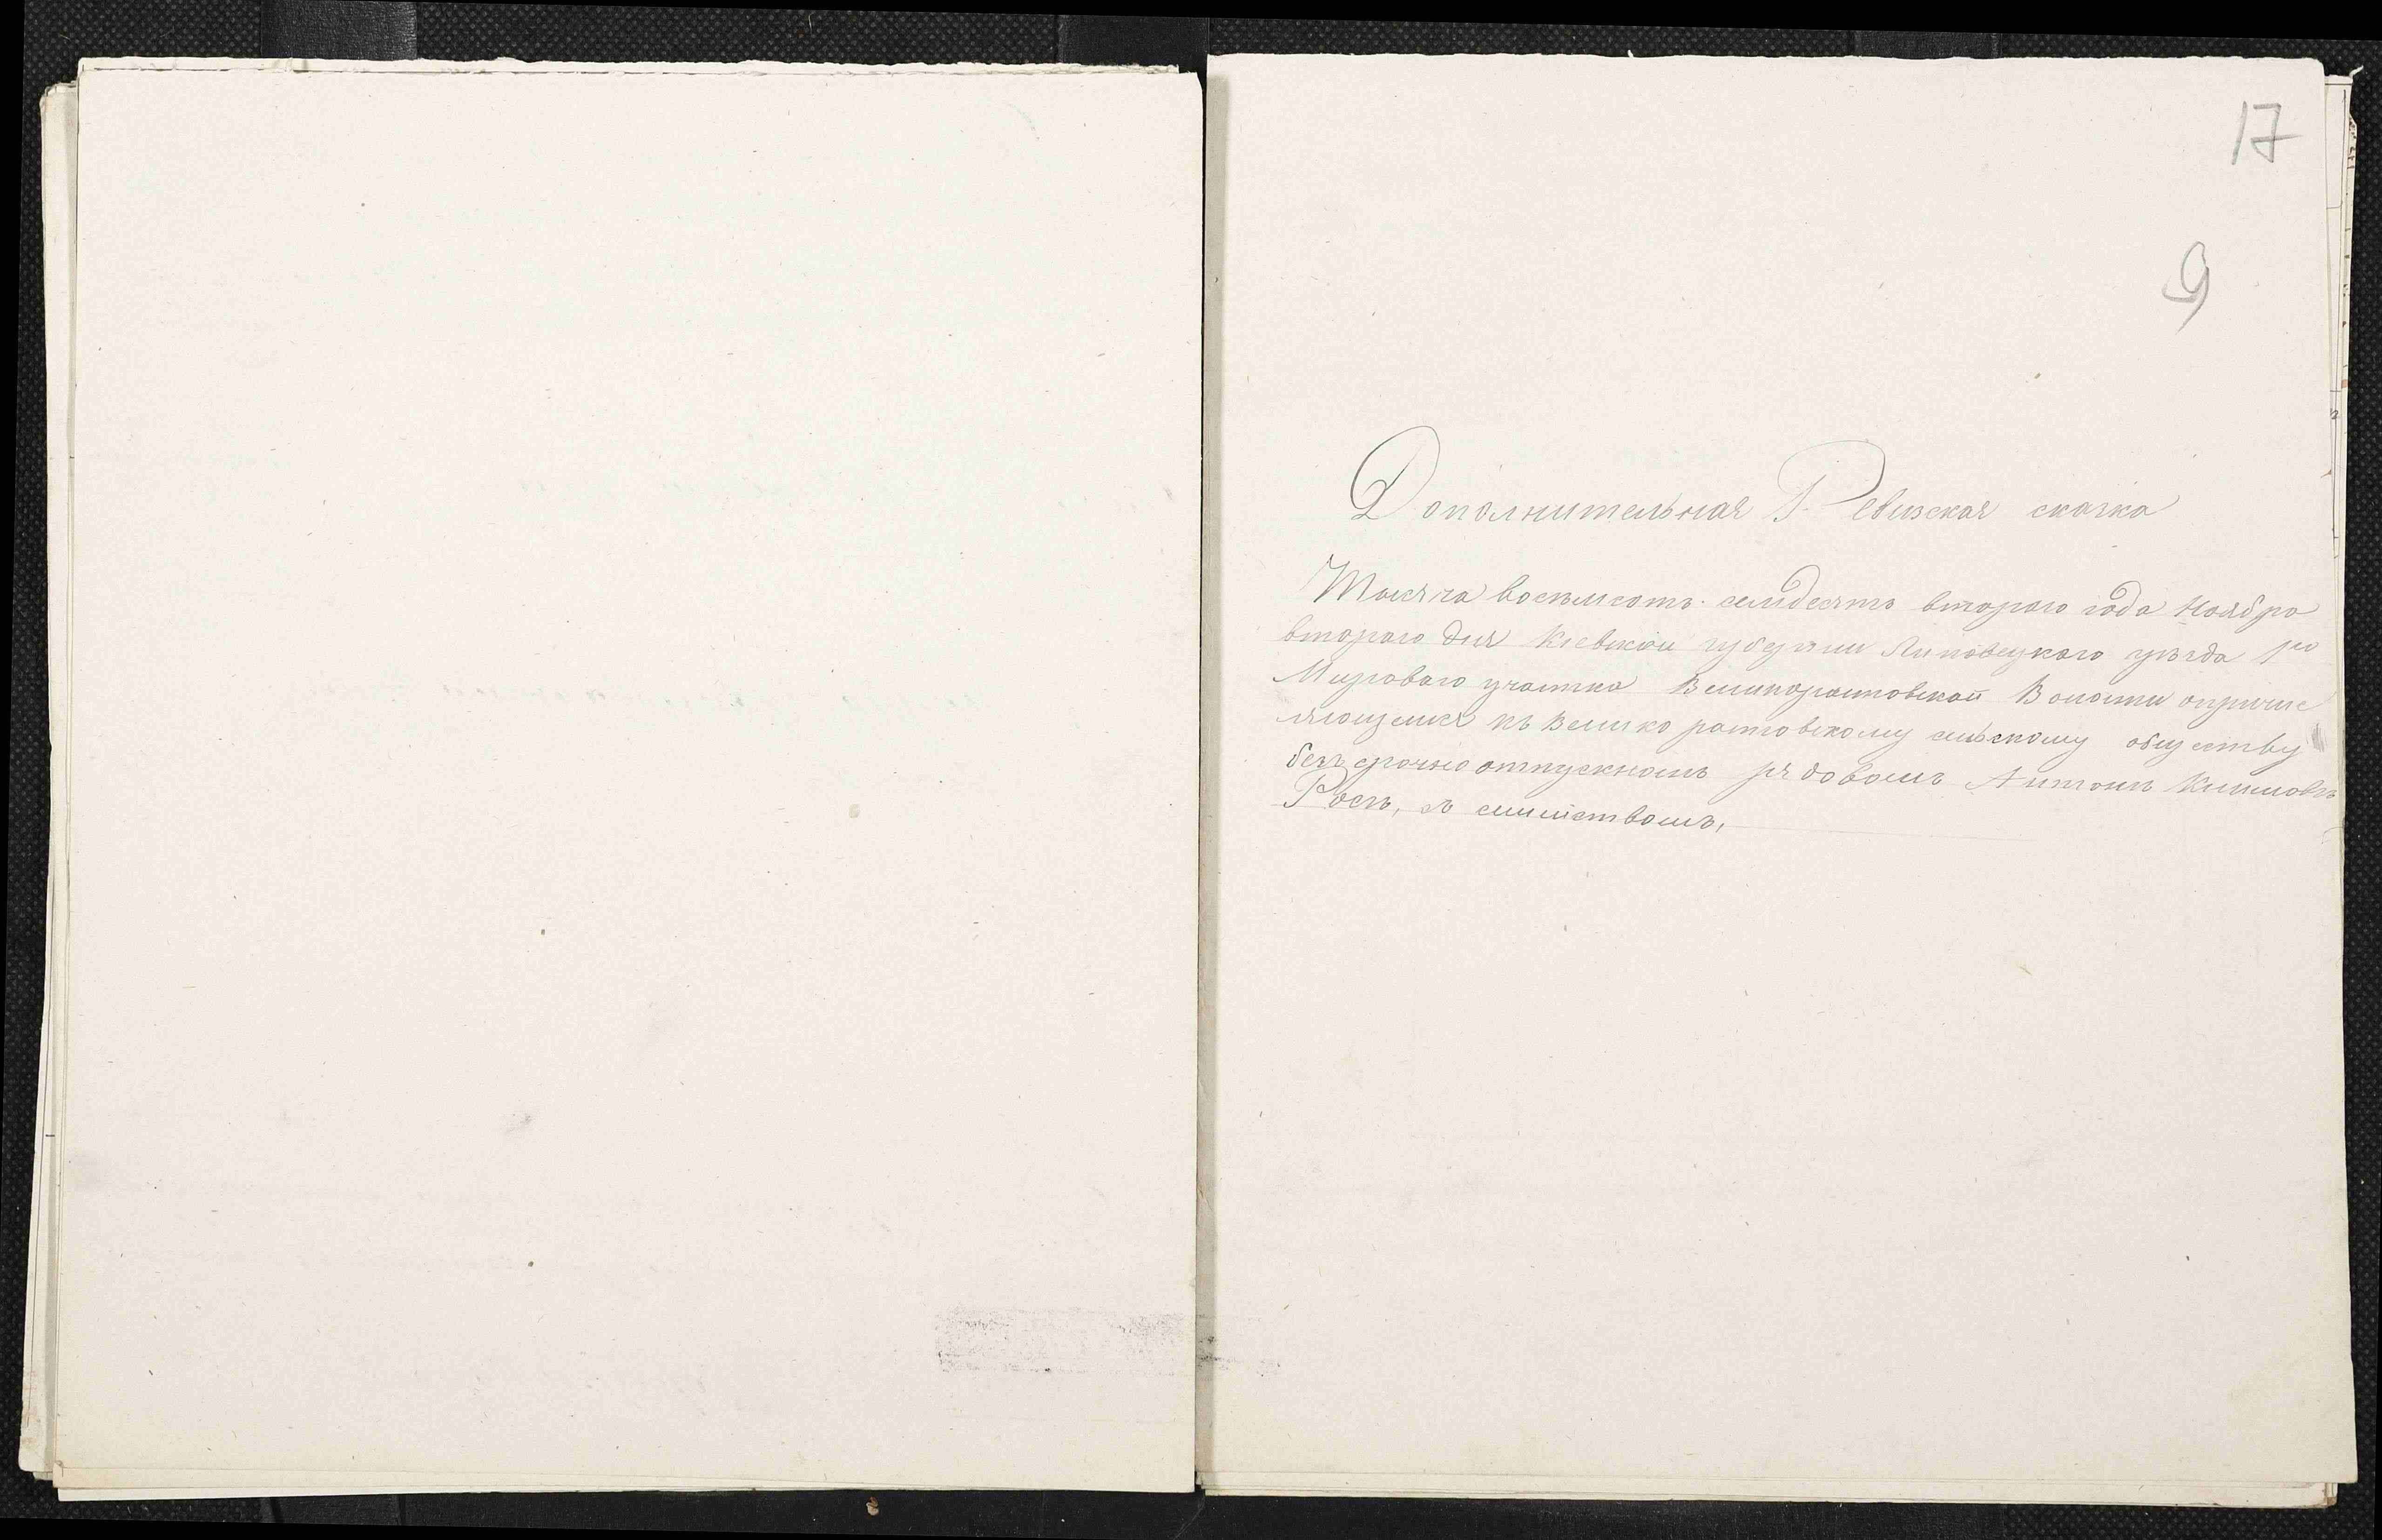 17
9
Дополнительная Ревизская сказка
Тысяча восемьсотъ семдесятъ втораго года Ноября
втораго дня Кіевской губерніи Липовецкаго уѣзда 1го
Мироваго участка Великоростовской Волости о причис
ляющемся къ Велико ростовскому сельскому обществу
безъ срочно отпускномъ рядовомъ Антонѣ
Рось, съ семействомъ,